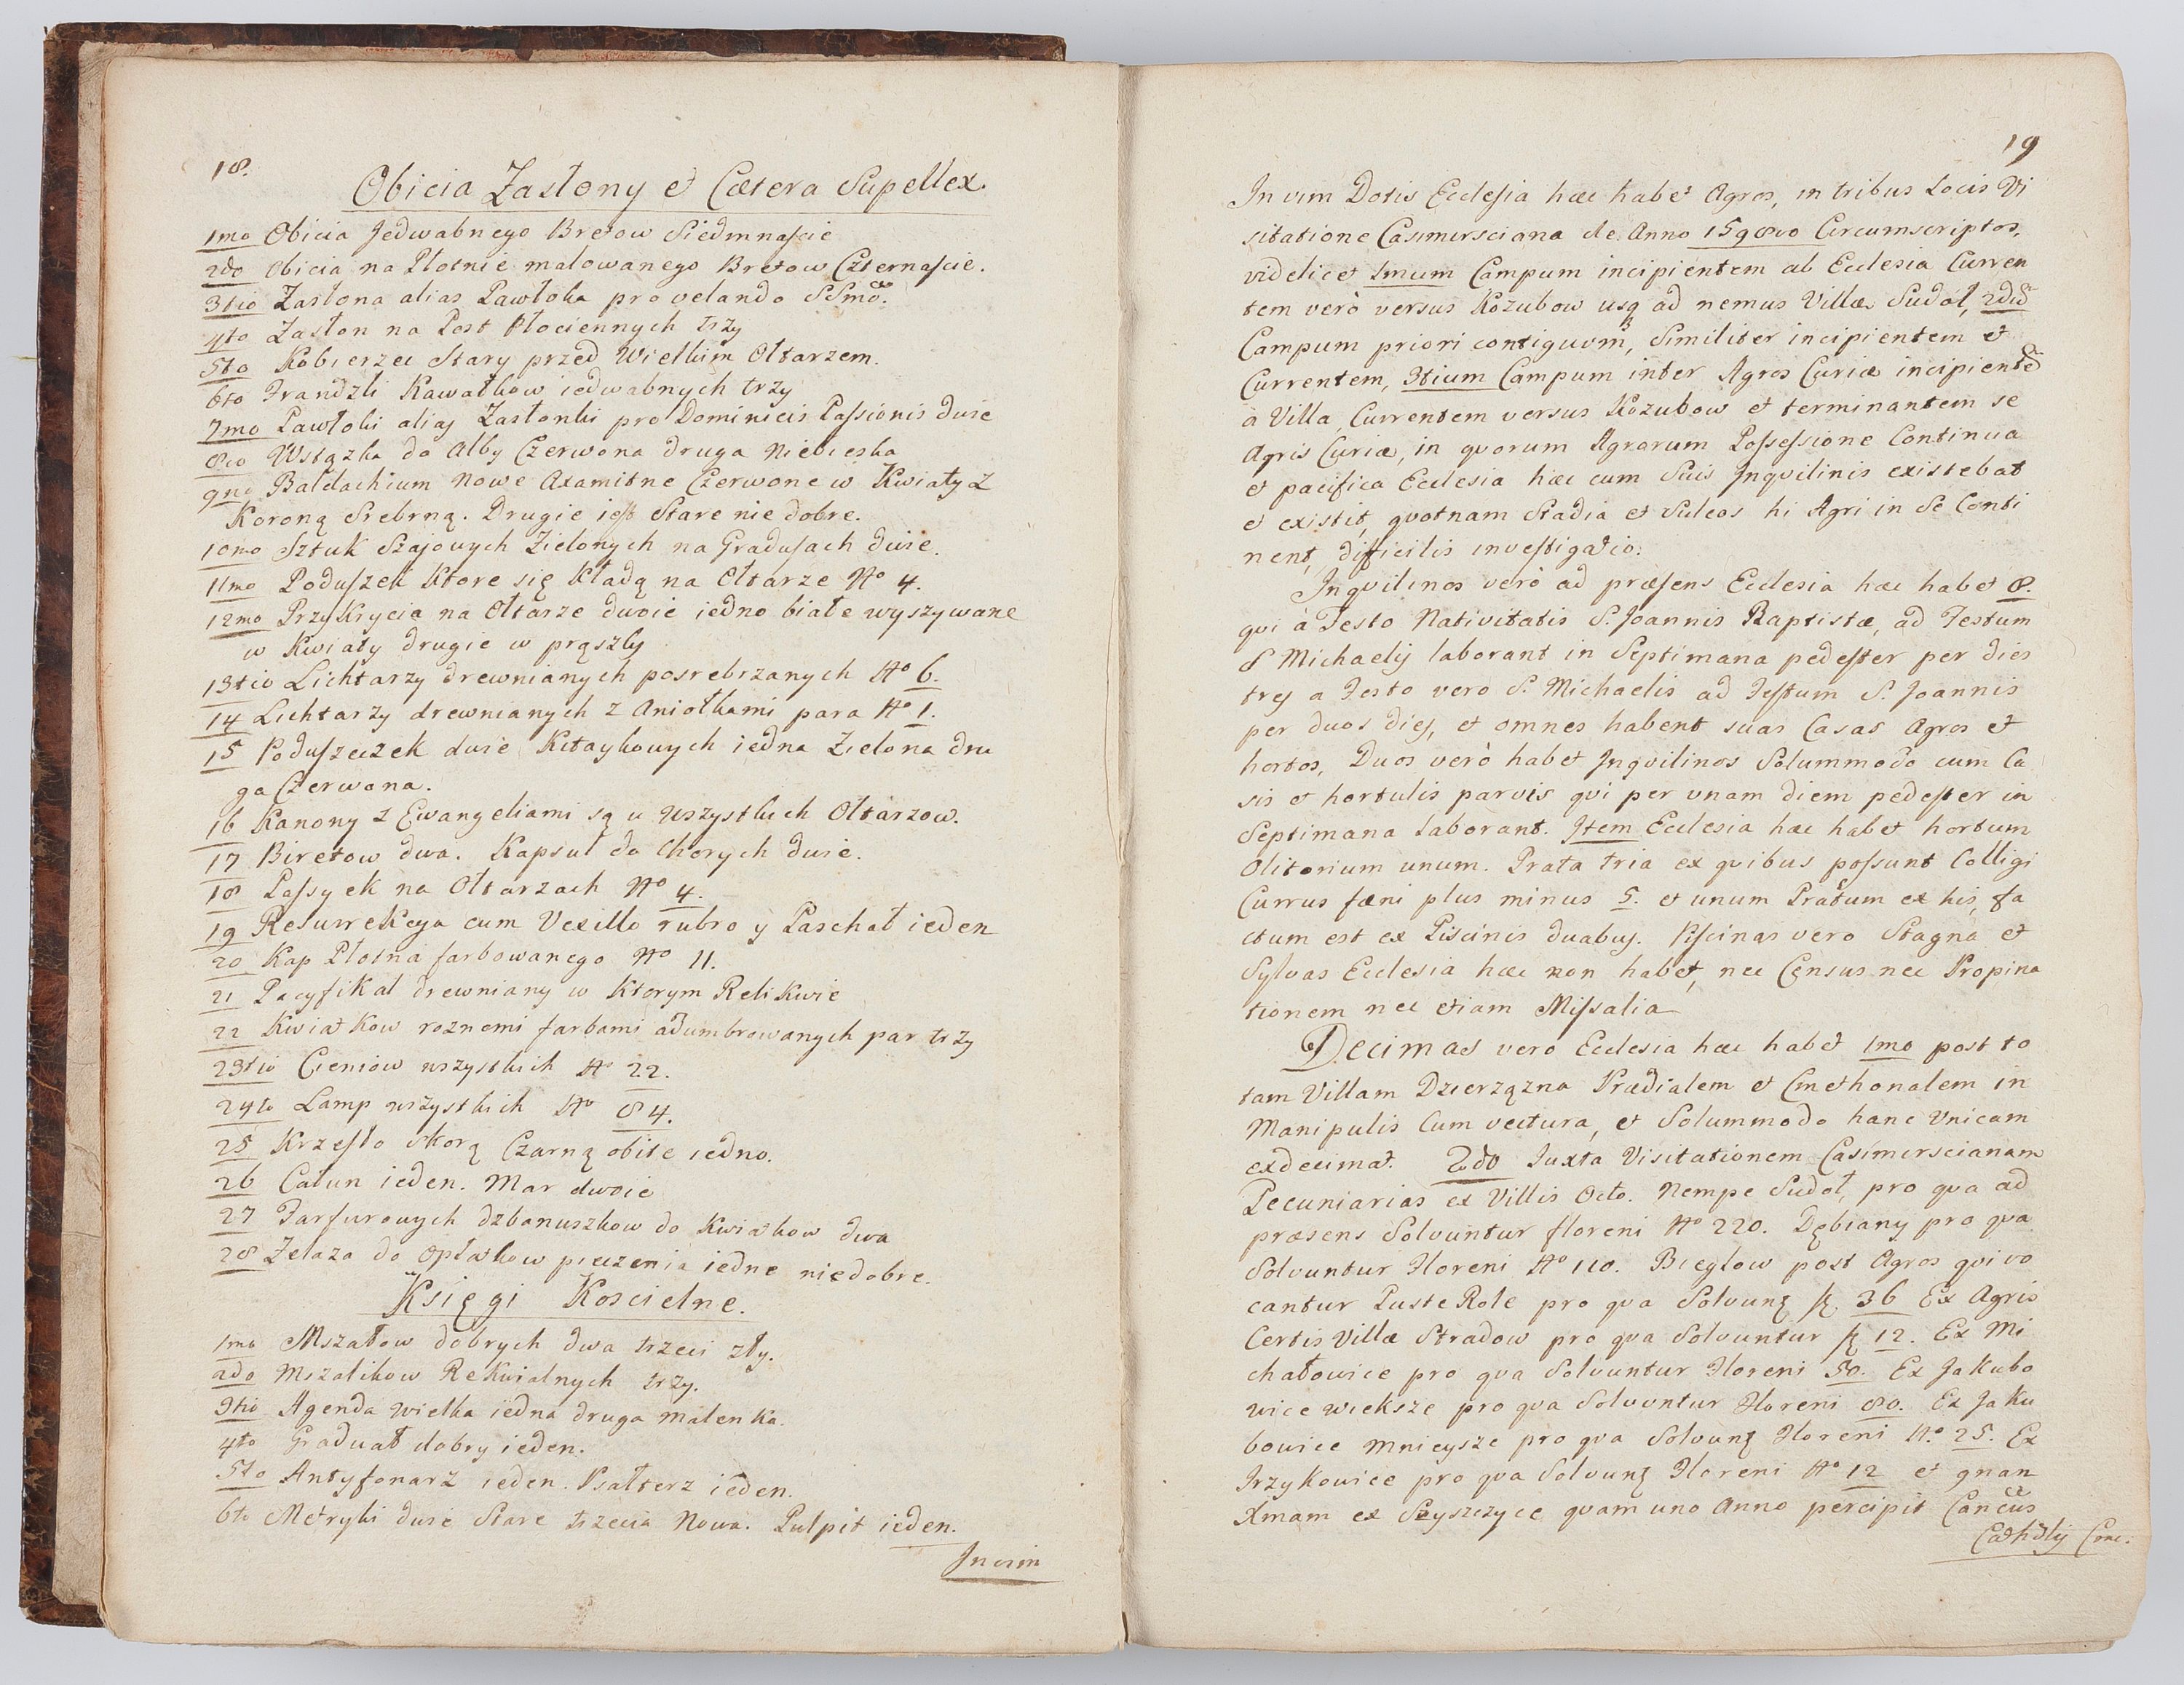 18.
Obicia Zasłony et Cætera Supellex.
1mo Obicia Jedwabnego Bretow Siedmnaście
2do Obicia na Płotnie malowanego Bretow Czternaście.
3tio Zasłona alias Pawłoka pro velando SSmo.
4to Zasłon na Post Płociennych trzy
5to Kobierzec Stary przed Wielkim Ołtarzem.
6to Frandzli Kawałkow iedwabnych trzy
7mo Pawłoki alias Zasłonki pro Dominicis Passionis dwie
8vo Wstązka do Alby Czerwona druga Niebieska
9no Baldachium Nowe Axamitne Czerwone w Kwiaty z
Koroną Srebrną. Drugie iest Stare nie dobre.
10mo Sztuk Szajowych Zielonych na Gradusach dwie.
11mo Poduszek Ktore się Kładą na Ołtarze No 4.
12mo PrzyKrycia na Ołtarze dwoie iedno białe wyszywane
w Kwiaty drugie w prązkly
13tio Lichtarzy drewnianych posrebrzanych No 6.
14 Lichtarzy drewnianych z Aniołkami para No 1.
15 Poduszeczek dwie Kitaykowych iedna Zielona dru
ga Czerwona.
16 Kanony z Ewangeliami są u wszystkich Ołtarzow.
17 Biretow dwa. Kapsuł do Chorych dwie.
18 Passyek na Ołtarzach No 4.
19 Resurrekcya cum Vexillo rubro y Paschał ieden
20 Kap Płotna farbowanego No 11.
21 Pacyfikał drewniany w Ktorym Relikwie
22 Kwiatkow roznemi farbami adumbrowanych par trzy
23tio Cieniow wszystkich No 22.
24to Lamp wszystkich No 84.
25 Krzesło skorą Czarną obite iedno.
26 Całun ieden. Mar dwoie
27 Farfurowych dzbanuszkow do Kwiatkow dwa
28 Zelaza do Opłatkow pieczenia iedne niedobre.
Księgi Koscielne.
1mo Mszałow dobrych dwa trzeci zły.
2do Mszalikow Rekwialnych trzy.
3tio Agenda wielka iedna druga malenka.
4to Graduał dobry ieden.
5to Antyfonarz ieden. Psałterz ieden.
6to Metryki dwie Stare trzecia Nowa. Pulpit ieden.
In vim
19
In vim Dotis Ecclesia hæc habet Agros, in tribus Locis Vi
sitatione Casimirsciana de Anno 1598vo Circumscriptos,
videlicet 1mum Campum incipientem ab Ecclesia Curren
tem verò versus Kozubow usq ad nemus Villæ Sudoł, 2dū
Campum priori contiguum, Similiter incipientem et
Currentem, 3tium Campum inter Agros Curiæ incipientē
à Villa, Currentem versus Kozubow et terminantem se
Agris Curiæ, in quorum Agrorum Possessione Continua
et pacifica Ecclesia hæc cum Suis Inqvilinis existebat
et existit, qvotnam Stadia et Sulcos hi Agri in Se Conti
nent, difficilis investigatio.
Inqvilinos verò ad præsens Ecclesia hæc habet 8.
qvi à Festo Nativitatis S. Joannis Baptistæ, ad Festum
S Michaelis laborant in Septimana pedester per dies
tres a Festo vero S. Michaelis ad Festum S. Joannis
per duos dies, et omnes habent suas Casas Agros et
hortos, Duos verò habet Inqvilinos Solummodo cum Ca
sis et hortulis parvis qvi per vnam diem pedester in
Septimana Laborant. Item Ecclesia hæc habet hortum
Olitorium unum. Prata tria ex qvibus possunt Colligi
Currus fæni plus minus 5. et unum Pratum ex his, fa
ctum est ex Piscinis duabus. Piscinas vero Stagna et
Sylvas Ecclesia hæc non habet, nec Census nec Propina
tionem nec etiam Missalia
Decimas vero Ecclesia hæc habet 1mo post to
tam Villam Dzierzązna Prædialem et Cmethonalem in
Manipulis Cum vectura, et Solummodo hanc Vnicam
exdecimat. 2do Juxta Visitationem Casimirscianam
Pecuniarias ex Villis Octo. Nempe Sudoł, pro qva ad
præsens Solvuntur floreni No 220. Dębiany pro qva
Solvuntur Floreni No 110. Bieglow post Agros qvi vo
cantur Puste Role pro qva Solvunt 36 Ex Agris
Certis Villæ Stradow pro qva Solvuntur 12. Ex Mi
chałowice pro qva Solvuntur Floreni 50. Ex Jakubo
wice wieksze pro qva Solvuntur Floreni 80. Ex Jaku
bowice mnieysze pro qva Solvunt Floreni No 25. Ex
Irzykowice pro qva Solvunt Floreni No 12 et
Xmam ex Szyszczyce qvam uno Anno percipit Cancus
Cathdlis Conc.